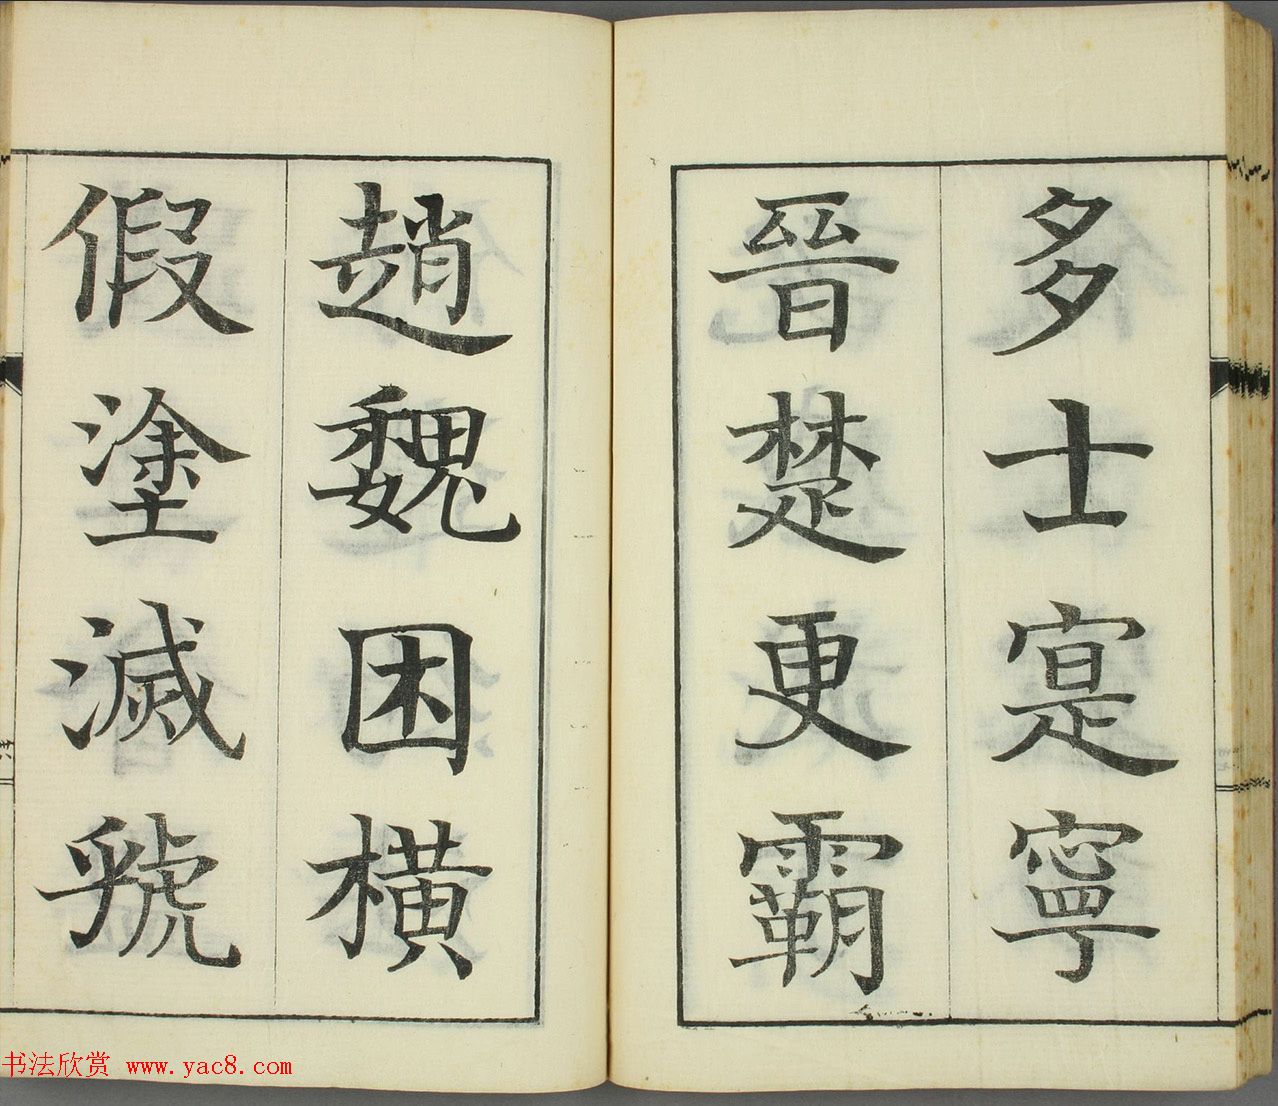 多士寔寧
晉楚更霸
趙魏困橫
假塗滅虢
书法欣赏 www.yac8.com